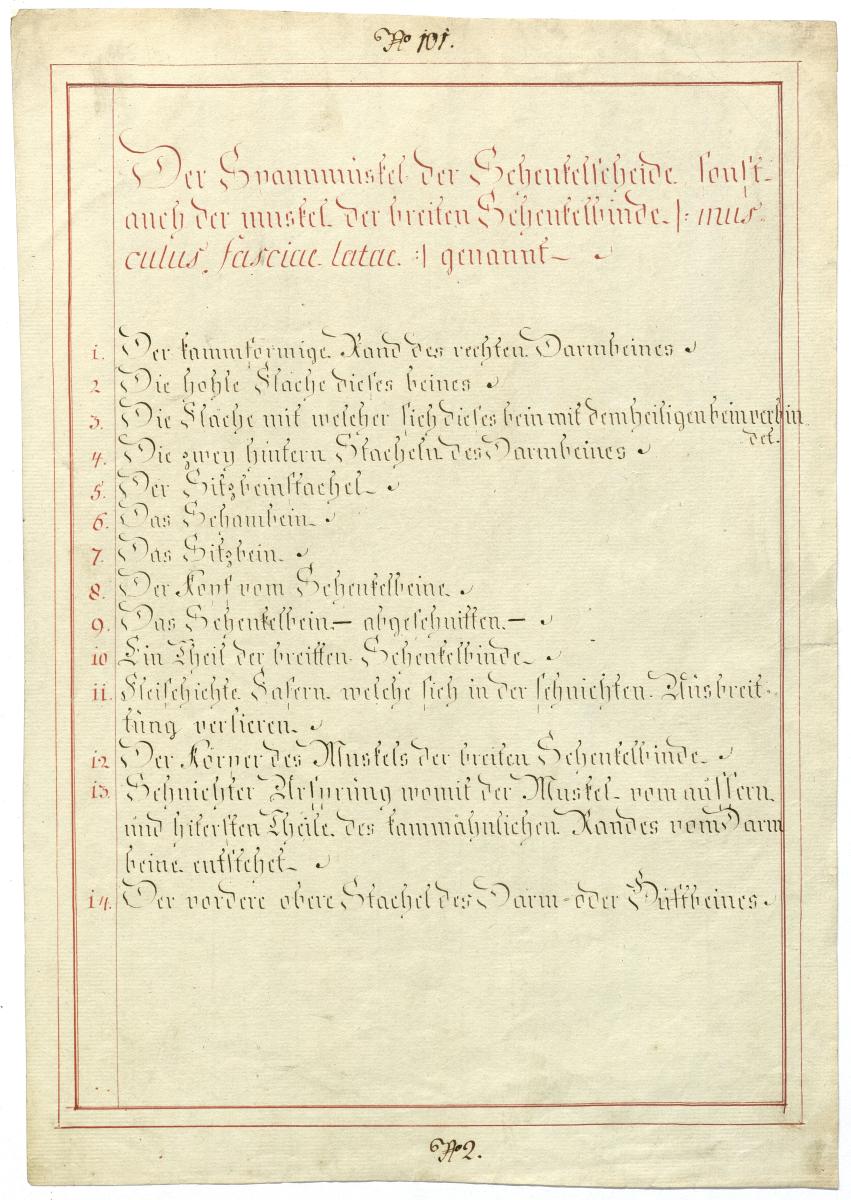 No 101.
Der Spannmuskel der Schenkelscheide sonst-
auch der muskel der breiten Schenkelbinde |: mus-
culus fasciae latae :| genannt
1. Der kammförmige Rand des rechten Darmbeines
2 Die hohle Fläche dieses beines
3. Die Fläche mit welcher sich dieses bein mit dem heiligenbein verbin
det.
4. Die zwey hintern Stacheln des Darmbeines
5. Der Sitzbeinstachel
6. Das Schambein
7. Das Sitzbein.
8. Der Kopf vom Schenkelbeine.
9. Das Schenkelbein — abgeschnitten. —
10 Ein Theil der breitten Schenkelbinde
11. Fleischichte Fasern welche sich in der sehnichten Ausbreit-
tung verlieren.
12 Der Körper des Muskels der breiten Schenkelbinde
13. Sehnichter Ursprung womit der Muskel vom äussern
und hitersten Theile des kammähnlichen Randes vom Darm
beine entstehet
14. Der vordere obere Stachel des Darm-oder Hüftbeines
No 2.